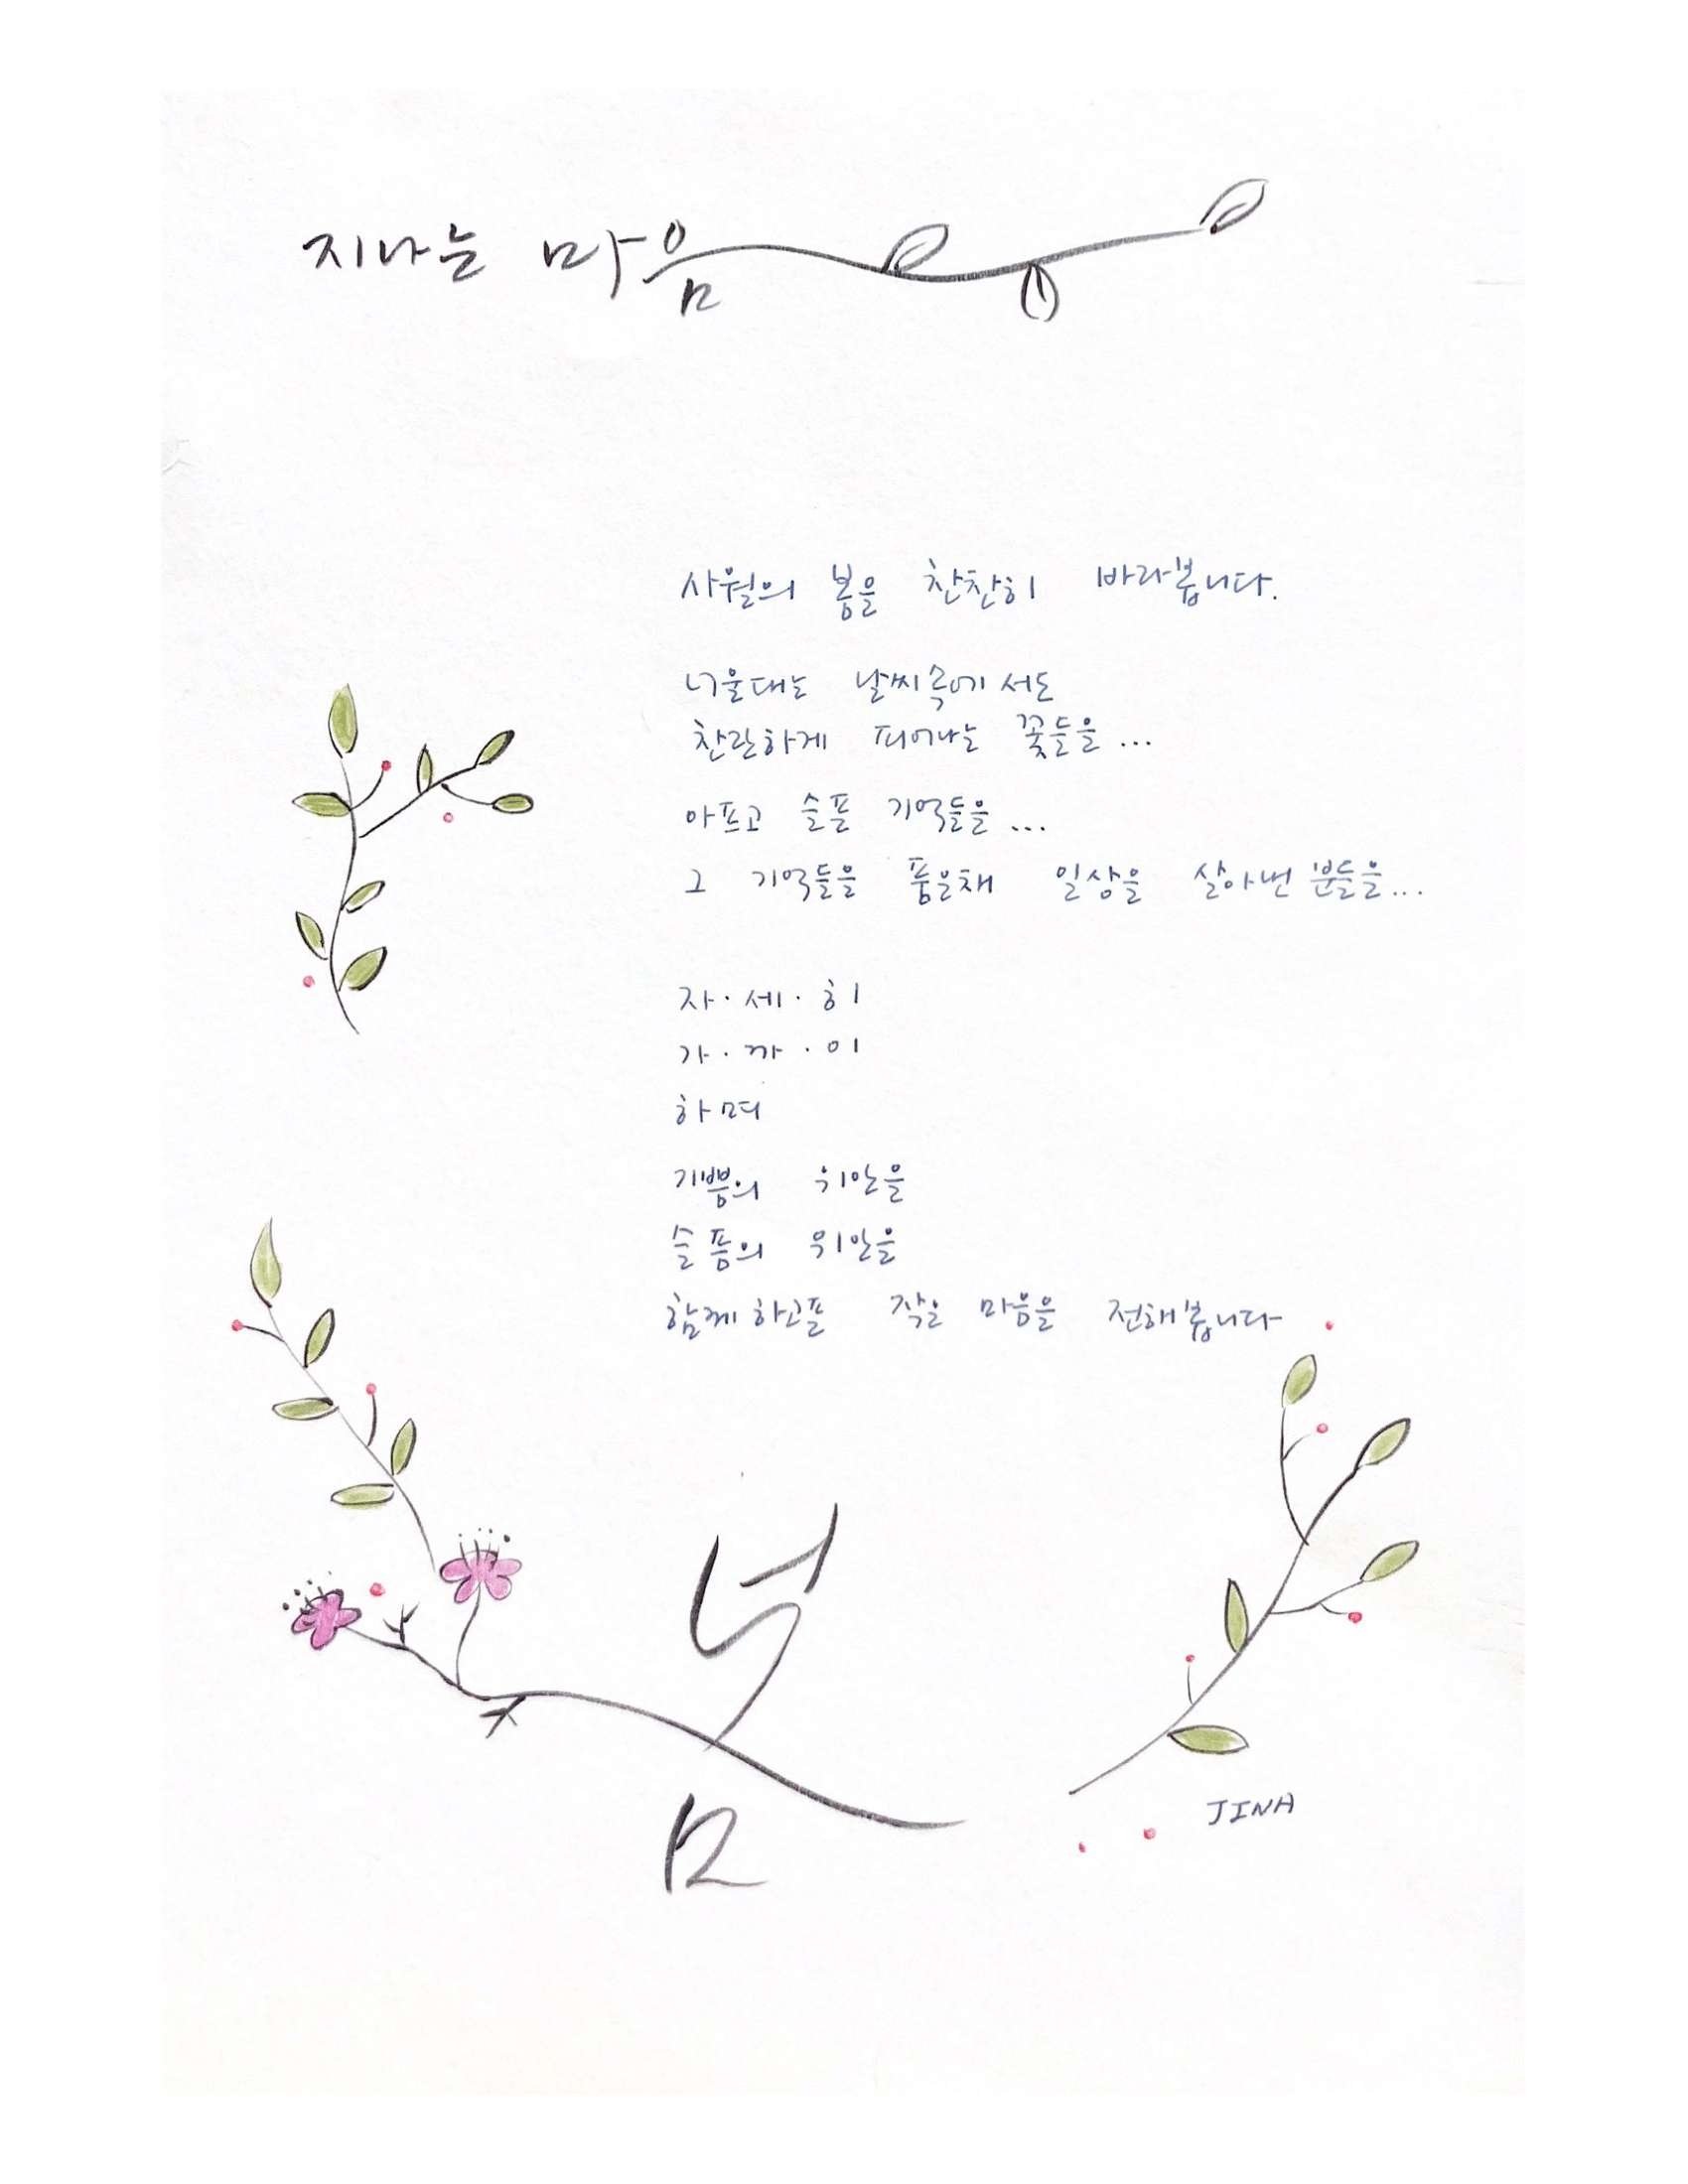 지나는 마음
사월의 봄을 찬찬히 바라봅니다.
너울대는 날씨속에서도
찬란하게 피어나는 꽃들을...
아프고 슬픈 기억들을...
그 기억들을 품은채 일상을 살아낸 분들을...
자·세·히
가·까·이
하며
기쁨의 위안을
슬픔의 위안을
함께하고픈 작은 마음을 전해봅니다
봄
JINA